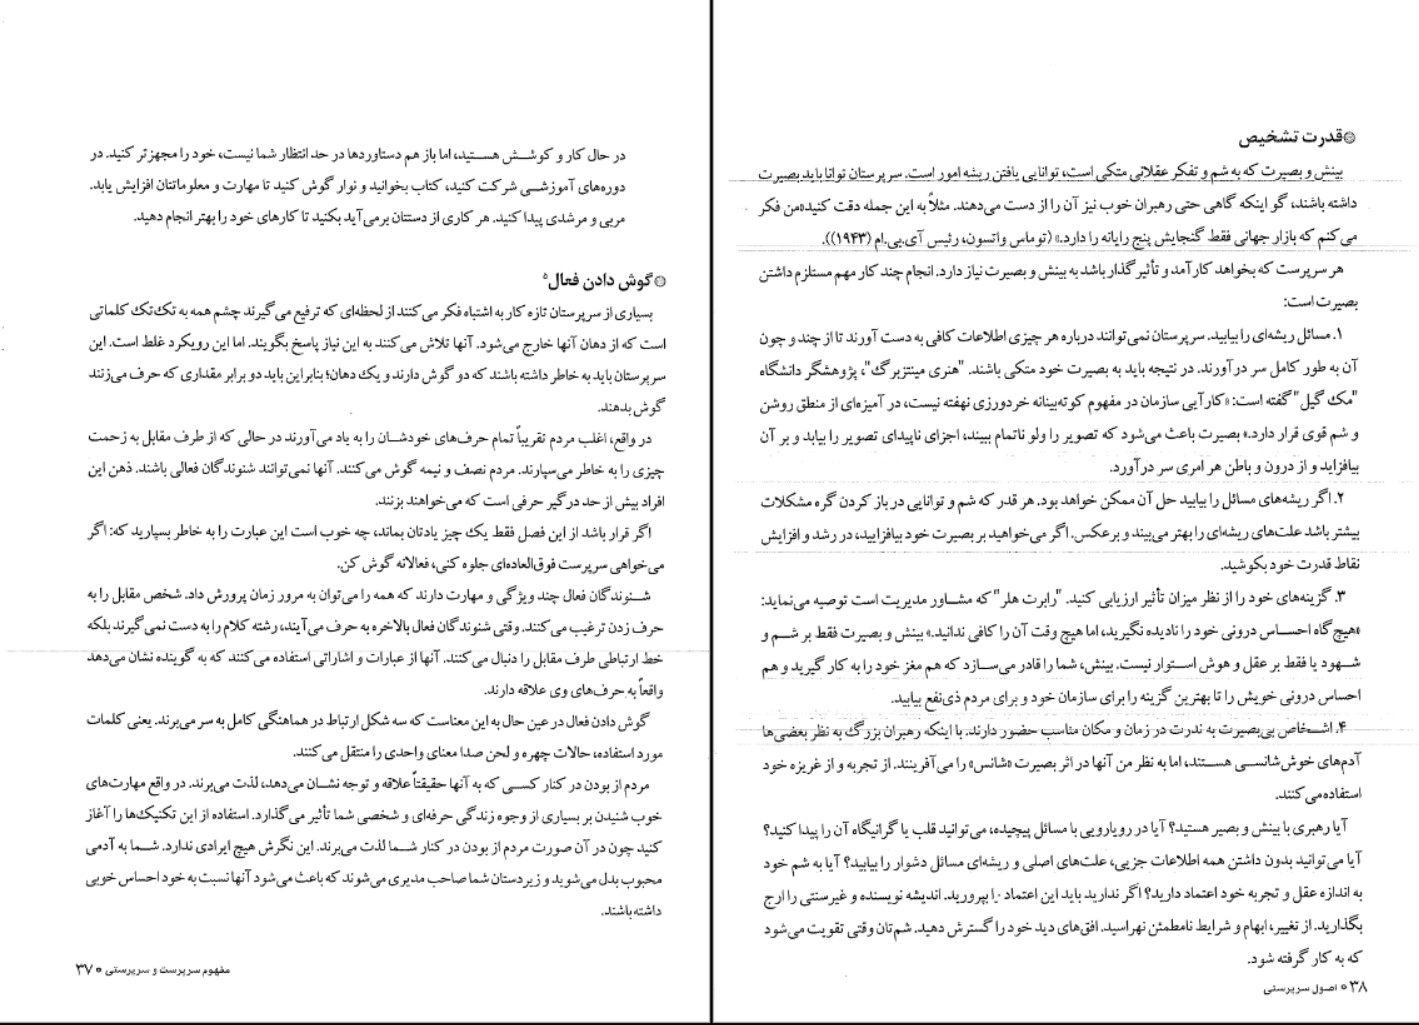 قدرت تشخیص
بینش و بصیرت که به شم و تفکر عقلانی متکی است، توانایی یافتن ریشه امور است. سرپرستان توانا باید بصیرت
داشته باشند، گو اینکه گاهی حتی رهبران خوب نیز آن را از دست می‌دهند. مثلاً به این جمله دقت کنید «من فکر
می‌کنم که بازار جهانی فقط گنجایش پنج رایانه را دارد.» (توماس واتسون، رئیس آی.بی.ام (۱۹۴۳)).
هر سرپرست که بخواهد کارآمد و تأثیرگذار باشد به بینش و بصیرت نیاز دارد. انجام چند کار مهم مستلزم داشتن
بصیرت است:
۱. مسائل ریشه‌ای را بیابید. سرپرستان نمی‌توانند درباره هر چیزی اطلاعات کافی به دست آورند تا از چند و چون
آن به طور کامل سر درآورند. در نتیجه باید به بصیرت خود متکی باشند. "هنری مینتزبرگ"، پژوهشگر دانشگاه
"مک گیل" گفته است: «کارآیی سازمان در مفهوم کوته‌بینانه خردورزی نهفته نیست، در آمیزه‌ای از منطق روشن
و شم قوی قرار دارد.» بصیرت باعث می‌شود که تصویر را ولو ناتمام ببیند، اجزای ناپیدای تصویر را بیابد و بر آن
بیافزاید و از درون و باطن هر امری سر درآورد.
۲. اگر ریشه‌های مسائل را بیابید حل آن ممکن خواهد بود. هر قدر که شم و توانایی در باز کردن گره مشکلات
بیشتر باشد علت‌های ریشه‌ای را بهتر می‌بیند و برعکس. اگر می‌خواهید بر بصیرت خود بیافزایید، در رشد و افزایش
نقاط قدرت خود بکوشید.
۳. گزینه‌های خود را از نظر میزان تأثیر ارزیابی کنید. "رابرت هلر" که مشاور مدیریت است توصیه می‌نماید:
«هیچ گاه احساس درونی خود را نادیده نگیرید، اما هیچ وقت آن را کافی ندانید.» بینش و بصیرت فقط بر شم و
شهود یا فقط بر عقل و هوش استوار نیست. بینش، شما را قادر می‌سازد که هم مغز خود را به کار گیرید و هم
احساس درونی خویش را تا بهترین گزینه را برای سازمان خود و برای مردم ذی‌نفع بیابید.
۴. اشخاص بی‌بصیرت به ندرت در زمان و مکان مناسب حضور دارند. با اینکه رهبران بزرگ به نظر بعضی‌ها
آدم‌های خوش‌شانسی هستند، اما به نظر من آنها در اثر بصیرت «شانس» را می‌آفرینند. از تجربه و از غریزه خود
استفاده می‌کنند.
آیا رهبری با بینش و بصیر هستید؟ آیا در رویارویی با مسائل پیچیده، می‌توانید قلب یا گرانیگاه آن را پیدا کنید؟
آیا می‌توانید بدون داشتن همه اطلاعات جزیی، علت‌های اصلی و ریشه‌ای مسائل دشوار را بیابید؟ آیا به شم خود
به اندازه عقل و تجربه خود اعتماد دارید؟ اگر ندارید باید این اعتماد را بپرورید. اندیشه نویسنده و غیرسنتی را ارج
بگذارید. از تغییر، ابهام و شرایط نامطمئن نهراسید. افق‌های دید خود را گسترش دهید. شم‌تان وقتی تقویت می‌شود
که به کار گرفته شود.
۳۸ اصول سرپرستی
در حال کار و کوشش هستید، اما باز هم دستاوردها در حد انتظار شما نیست، خود را مجهزتر کنید. در
دوره‌های آموزشی شرکت کنید، کتاب بخوانید و نوار گوش کنید تا مهارت و معلوماتتان افزایش یابد.
مربی و مرشدی پیدا کنید. هر کاری از دستتان برمی‌آید بکنید تا کارهای خود را بهتر انجام دهید.
گوش دادن فعال
بسیاری از سرپرستان تازه کار به اشتباه فکر می‌کنند از لحظه‌ای که ترفیع می‌گیرند چشم همه به تک‌تک کلماتی
است که از دهان آنها خارج می‌شود. آنها تلاش می‌کنند به این نیاز پاسخ بگویند. اما این رویکرد غلط است. این
سرپرستان باید به خاطر داشته باشند که دو گوش دارند و یک دهان؛ بنابراین باید دو برابر مقداری که حرف می‌زنند
گوش بدهند.
در واقع، اغلب مردم تقریباً تمام حرف‌های خودشان را به یاد می‌آورند در حالی که از طرف مقابل به زحمت
چیزی را به خاطر می‌سپارند. مردم نصف و نیمه گوش می‌کنند. آنها نمی‌توانند شنوندگان فعالی باشند. ذهن این
افراد بیش از حد درگیر حرفی است که می‌خواهند بزنند.
اگر قرار باشد از این فصل فقط یک چیز یادتان بماند، چه خوب است این عبارت را به خاطر بسپارید که: اگر
می‌خواهی سرپرست فوق‌العاده‌ای جلوه کنی، فعالانه گوش کن.
شنوندگان فعال چند ویژگی و مهارت دارند که همه را می‌توان به مرور زمان پرورش داد. شخص مقابل را به
حرف زدن ترغیب می‌کنند. وقتی شنوندگان فعال بالاخره به حرف می‌آیند، رشته کلام را به دست نمی‌گیرند بلکه
خط ارتباطی طرف مقابل را دنبال می‌کنند. آنها از عبارات و اشاراتی استفاده می‌کنند که به گوینده نشان می‌دهد
واقعاً به حرف‌های وی علاقه دارند.
گوش دادن فعال در عین حال به این معناست که سه شکل ارتباط در هماهنگی کامل به سر می‌برند. یعنی کلمات
مورد استفاده، حالات چهره و لحن صدا معنای واحدی را منتقل می‌کنند.
مردم از بودن در کنار کسی که به آنها حقیقتاً علاقه و توجه نشان می‌دهد، لذت می‌برند. در واقع مهارت‌های
خوب شنیدن بر بسیاری از وجوه زندگی حرفه‌ای و شخصی شما تأثیر می‌گذارد. استفاده از این تکنیک‌ها را آغاز
کنید چون در آن صورت مردم از بودن در کنار شما لذت می‌برند. این نگرش هیچ ایرادی ندارد. شما به آدمی
محبوب بدل می‌شوید و زیردستان شما صاحب مدیری می‌شوند که باعث می‌شود آنها نسبت به خود احساس خوبی
داشته باشند.
مفهوم سرپرست و سرپرستی ۳۷